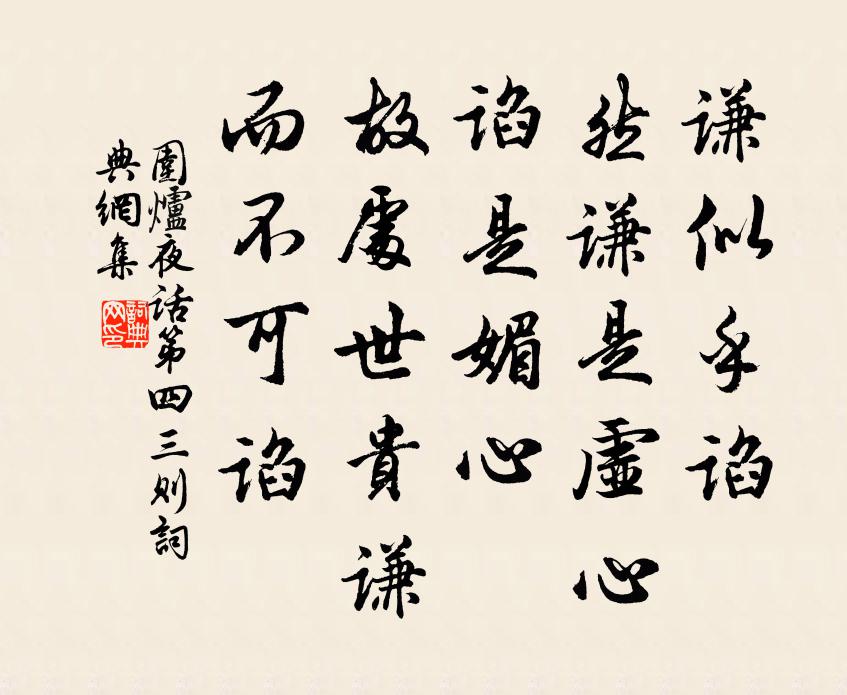 谦似乎谄
然谦是虚心
谄是媚心
故處世貴谦
而不可谄
圍爐夜话第四三则詞
典網集
詞典
网印